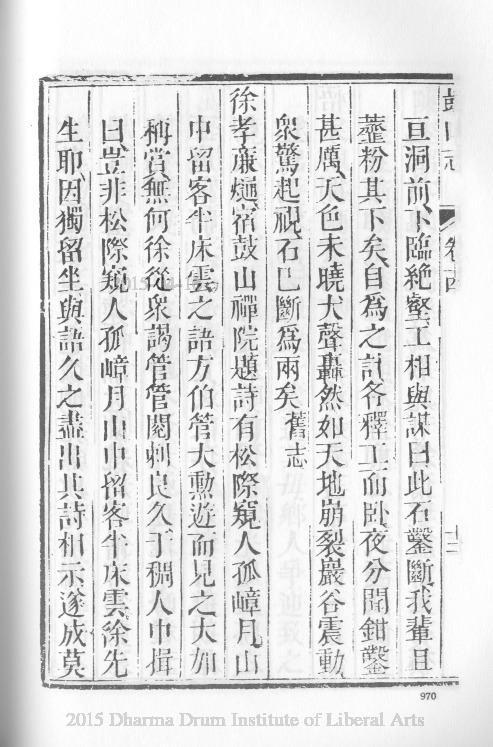 鼓山志 卷十四
亘洞前下臨絕壑工相與謀曰此石鑿斷我輩且
虀粉其下矣自為之計各釋工而臥夜分聞鉗鑿
甚厲天色未曉大聲轟然如天地崩裂巖谷震動
衆驚起視石已斷為兩矣舊志
徐孝廉𤊹宿鼓山禪院題詩有松際窺人孤嶂月山
中留客半床雲之語方伯管大勳遊而見之大加
稱賞無何徐從衆謁管管閱刺良久于稠人中揖
曰豈非松際窺人孤嶂月山中留客半床雲徐先
生耶因獨留坐與語久之盡出其詩相示遂成莫
970
2015 Dharma Drum Institute of Liberal Arts